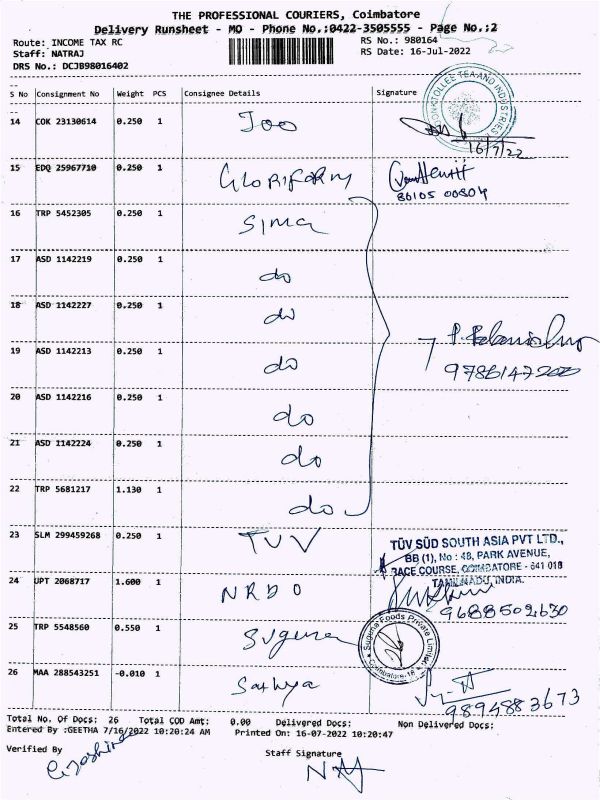 THE PROFESSIONAL COURIERS, Coimbatore
Delivery Runsheet - MO - Phone No.:0422-3505555 - Page No.:2
Route: INCOME TAX RC
RS No.: 980164
Staff: NATRAJ
RS Date: 16-Jul-2022
DRS No.: DCJB98016402
S No Consignment No Weight PCS Consignee Details Signature
14 COK 23130614 0.250 1 Joo
TEA AND INDUSTRIES
16/7/22
15 EDQ 25967710 0.250 1 GLORIFORM
86105 00804
16 TRP 5452305 0.250 1 Sima
17 ASD 1142219 0.250 1 do
18 ASD 1142227 0.250 1 do
19 ASD 1142213 0.250 1 do
20 ASD 1142216 0.250 1 do
21 ASD 1142224 0.250 1 do
22 TRP 5681217 1.130 1 do
23 SLM 299459268 0.250 1 TUV
TÜV SÜD SOUTH ASIA PVT LTD.,
BB (1), No : 48, PARK AVENUE,
RACE COURSE, COIMBATORE - 641 018
TAMILNADU, INDIA.
24 UPT 2068717 1.600 1 NRDO
9688502630
25 TRP 5548560 0.550 1 Suguna
Suguna Foods Private Limited
Coimbatore-18
26 MAA 288543251 -0.010 1 Sathya
9894883673
Total No. Of Docs: 26 Total COD Amt: 0.00 Delivered Docs: Non Delivered Docs:
Entered By :GEETHA 7/16/2022 10:20:24 AM Printed On: 16-07-2022 10:20:47
Verified By
Staff Signature